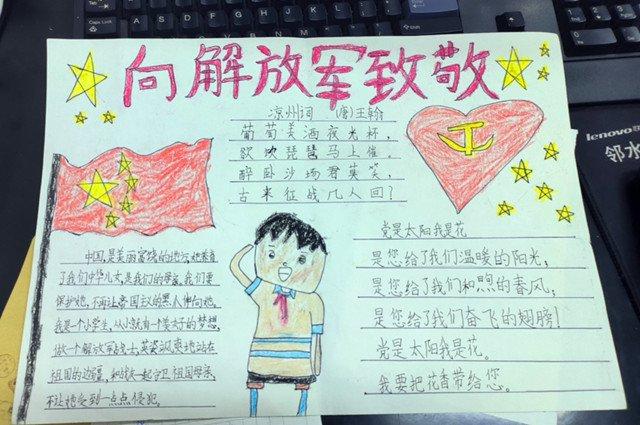 向解放军致敬
凉州词 (唐)王翰
葡萄美酒夜光杯,
欲饮琵琶马上催。
醉卧沙场君莫笑,
古来征战几人回?
中国,是美丽富饶的地方,她养育
了我们中华儿女,是我们的母亲,我们要
保护她,不再让帝国主义的黑人伸向她。
我是个小学生,从小就有一个美好的梦想,
做一个解放军战士,英姿飒爽地站在
祖国的边疆,和战友一起守卫祖国母亲,
不让她受到一点点侵犯。
党是太阳我是花
是您给了我们温暖的阳光;
是您给了我们和煦的春风;
是您给了我们奋飞的翅膀!
党是太阳我是花。
我要把花香带给您。
lenovo
邻水